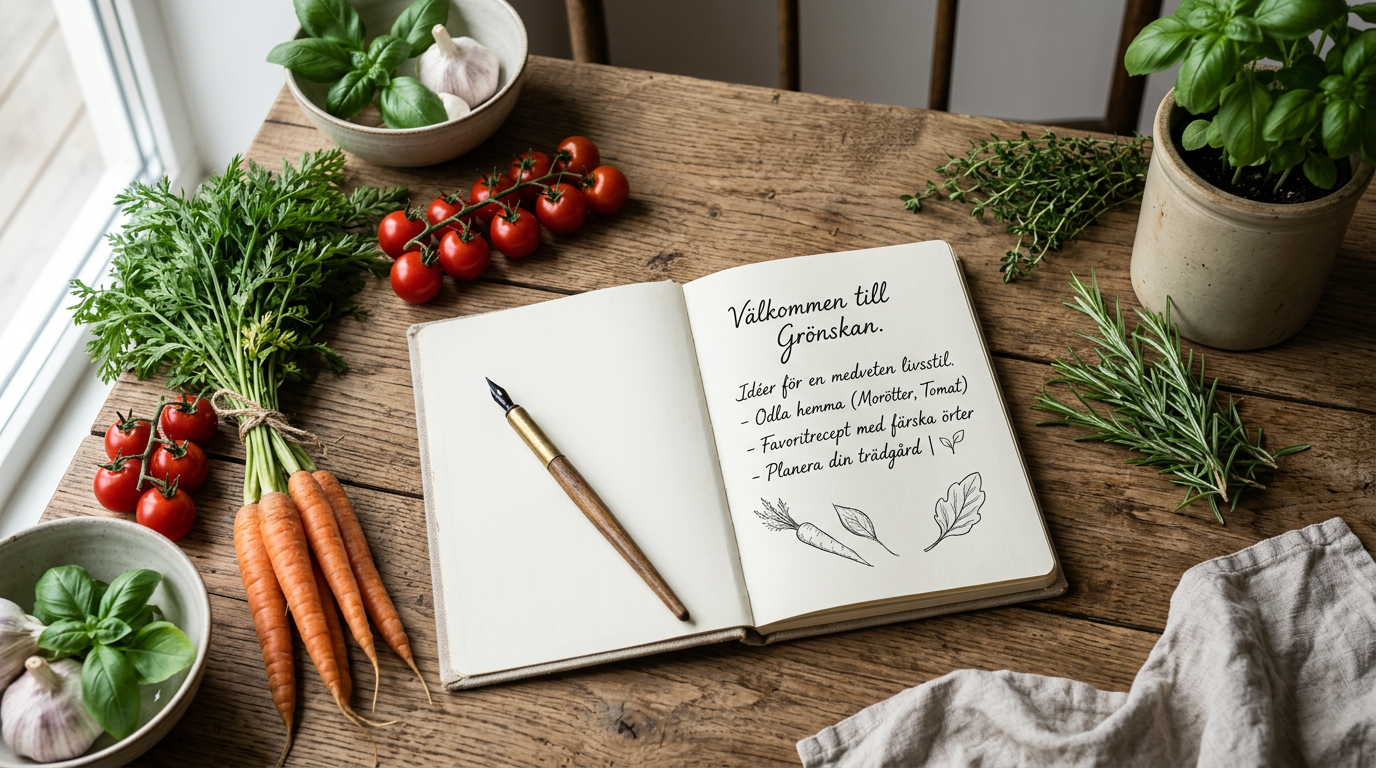 Välkommen till
Grönskan.
Idéer för en medveten livsstil.
- Odla hemma (Morötter, Tomat)
- Favoritrecept med färska örter
- Planera din trädgård |